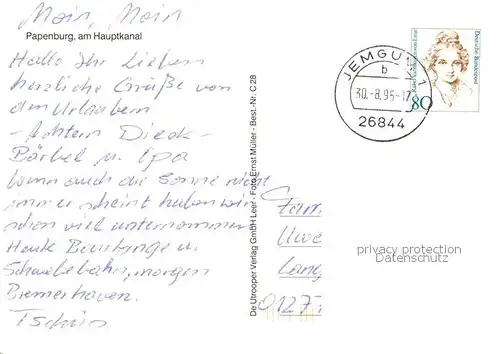 Moin, Moin
Papenburg, am Hauptkanal
Hallo Ihr Lieben
herzliche Grüße von
den Urlaubern
- Achtern Dieck -
Bärbel u. Opa
Wenn auch die Sonne nicht
immer scheint haben wir
schon viel unternommen
Heute Bourtange u.
Schwebebahn, morgen
Bremerhaven.
Tschüss
De Utrooper Verlag GmbH Leer - Foto Ernst Müller - Best.-Nr. C 28
JEMGUM 1
b
30.-8.95-17
26844
Deutsche Bundespost
80
Fam.
Uwe
Lang
0127
privacy protection
Datenschutz